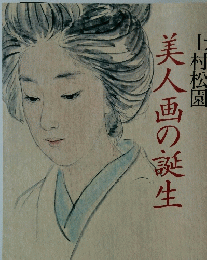 上村松園
美人画の誕生